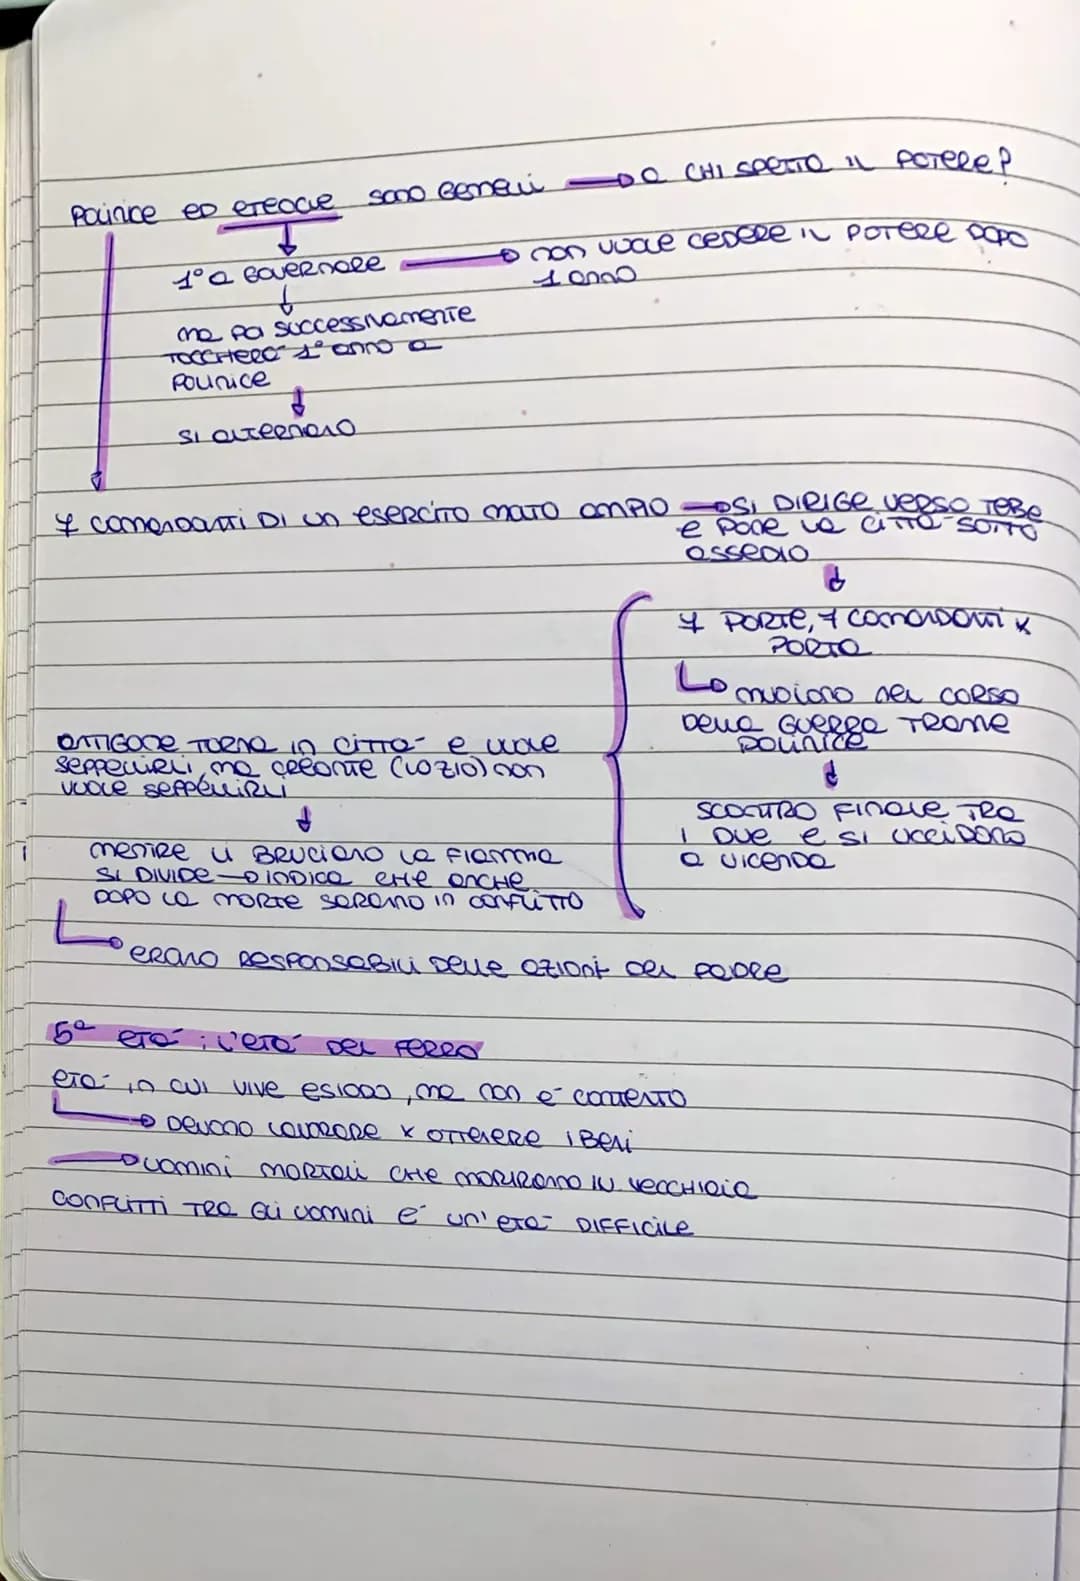 POLINICE ED ETEOCLE SONO GEMELLI → A CHI SPETTA IL POTERE?
1° A GOVERNARE → NON VUOLE CEDERE IL POTERE DOPO
1 ANNO
MA POI SUCCESSIVAMENTE
TOCCHERA' 1° ANNO A
POLINICE
SI ALTERNANO
7 COMANDANTI DI UN ESERCITO MOLTO AMPIO → SI DIRIGE VERSO TEBE
E PONE LA CITTA' SOTTO
ASSEDIO
7 PORTE, 7 COMANDANTI X
PORTA
MUOIONO NEL CORSO
DELLA GUERRA TRANNE
POLINICE
SCONTRO FINALE TRA
I DUE E SI UCCIDONO
A VICENDA
ANTIGONE TORNA IN CITTA' E VUOLE
SEPPELLIRLI, MA CREONTE (LO ZIO) NON
VUOLE SEPPELLIRLI
MENTRE LI BRUCIANO LA FIAMMA
SI DIVIDE → INDICA CHE ANCHE
DOPO LA MORTE SARANNO IN CONFLITTO
ERANO RESPONSABILI DELLE AZIONI DEL PADRE
5ª ETA': L'ETA' DEL FERRO
ETA' IN CUI VIVE ESIODO, MA NON E' CONTENTO
→ DEVONO LAVORARE X OTTENERE I BENI
→ UOMINI MORTALI CHE MORIRANNO IN VECCHIAIA
CONFLITTI TRA GLI UOMINI E' UN'ETA' DIFFICILE